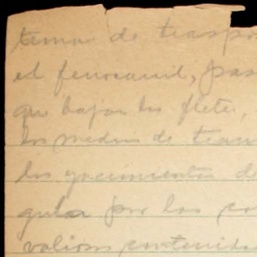 temas de traspo
el ferrocarril, pas
que bajar los fletes,
los medios de tran
los yacimientos de
gula por los co
valioso contenido